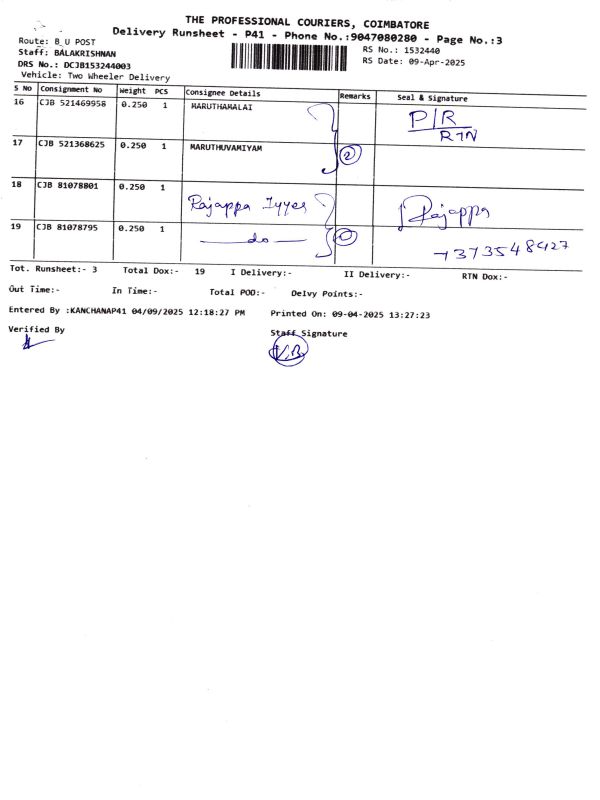 THE PROFESSIONAL COURIERS, COIMBATORE
Delivery Runsheet - P41 - Phone No.:9047080280 - Page No.:3
Route: B_U POST
Staff: BALAKRISHNAN
DRS No.: DCJB153244003
Vehicle: Two Wheeler Delivery
RS No.: 1532440
RS Date: 09-Apr-2025
S No Consignment No Weight PCS Consignee Details Remarks Seal & Signature
16 CJB 521469958 0.250 1 MARUTHAMALAI P/R
RTN
17 CJB 521368625 0.250 1 MARUTHUVAMIYAM 2
18 CJB 81078801 0.250 1 Rajappa Iyyer Rajappa
19 CJB 81078795 0.250 1 —do—
Tot. Runsheet:- 3 Total Dox:- 19 I Delivery:- II Delivery:- RTN Dox:-
Out Time:- In Time:- Total POD:- Delvy Points:-
Entered By :KANCHANAP41 04/09/2025 12:18:27 PM Printed On: 09-04-2025 13:27:23
Verified By Staff Signature
V.B